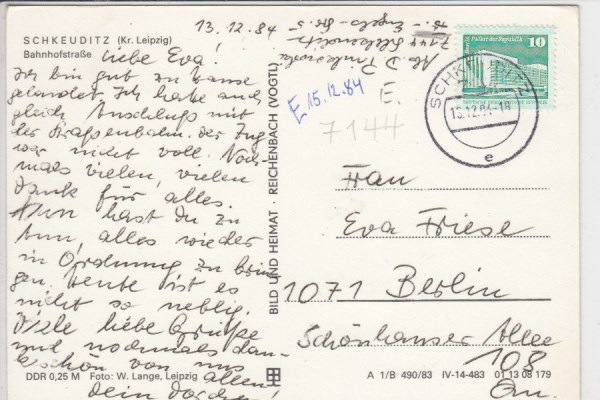 13.12.84
SCHKEUDITZ (Kr. Leipzig)
Bahnhofstraße
Liebe Eva!
Ich bin gut zu Hause
gelandet. Ich hatte auch
gleich Anschluß mit
der Straßenbahn. Der Zug
war nicht voll. Noch-
mals vielen, vielen
Dank für alles.
Nun hast Du zu
tun, alles wieder
in Ordnung zu brin-
gen. Heute ist es
nicht so neblig.
Viele liebe Grüße
und nochmals dan-
keschön von uns
allen!
Dein
DDR 0,25 M Foto: W. Lange, Leipzig
BILD UND HEIMAT · REICHENBACH (VOGTL)
Abs. D.
7144 Schkeuditz
Engels-Str. 5
E 15.12.84
E.
7144
Palast der Republik
10
SCHKEUDITZ
13.12.84-18
e
Frau
Eva Friese
1071 Berlin
Schönhauser Allee
108
A 1/B 490/83 IV-14-483 01 13 08 179